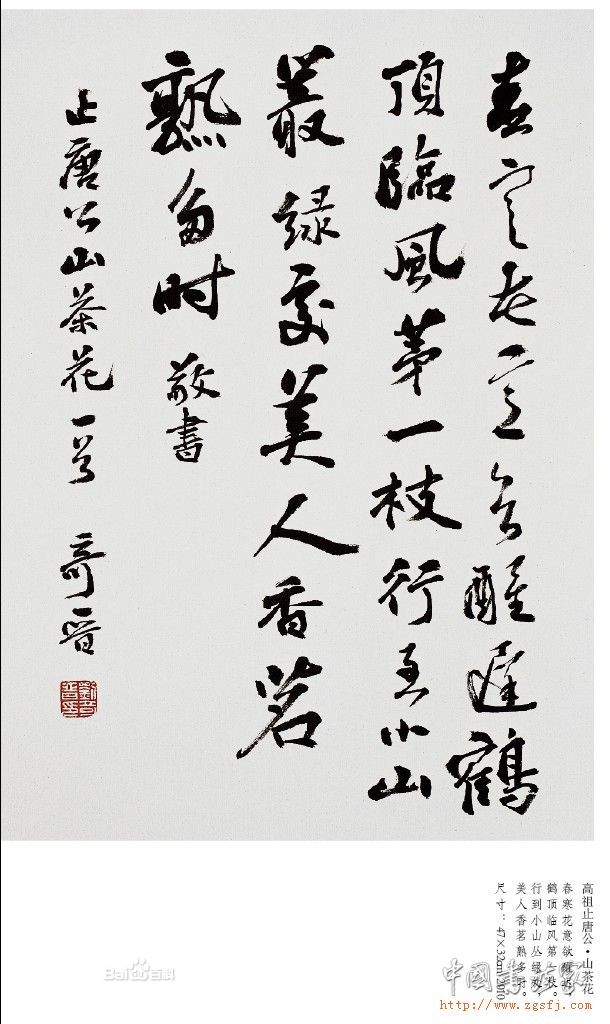 春寒花意欲醒遲鶴
頂臨風茅一枝行到小山
叢緑處美人香茗
熟多时 敬書
止唐公山茶花一首 奇晋
高祖止唐公·山茶花
春寒花意欲醒迟，
鹤顶临风第一枝。
行到小山丛绿处，
美人香茗熟多时。
尺寸：47×32cm 2010
Baidu百科
http://www.zgsfj.com